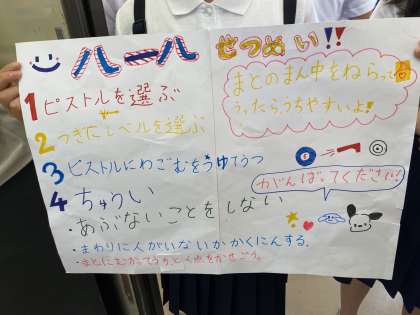 ルール
1 ピストルを選ぶ
2 つぎにレベルを選ぶ
3 ピストルにわごむをうけてうつ
4 ちゅうい
・あぶないことをしない
・まわりに人がいないかかくにんする。
せつめい!!
まとのまん中をねらって
うったらうちやすいよ!!
がんばってください!